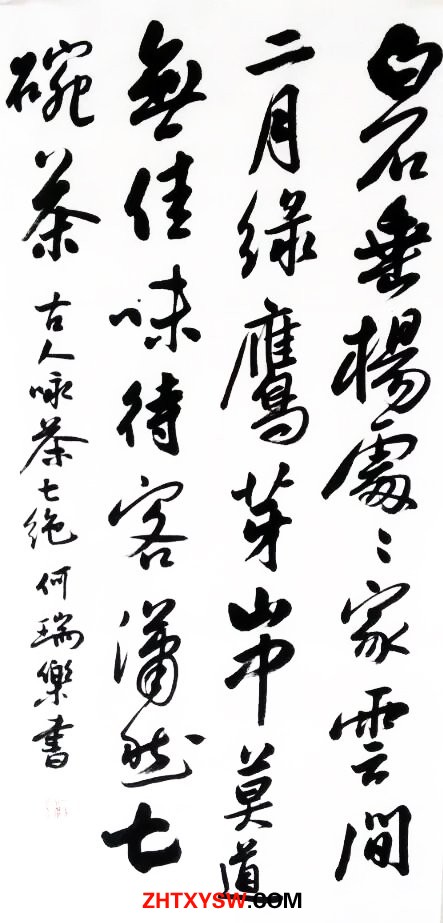 白石垂楊處〻家雲間
二月綠鷹芽山中莫道
無佳味待客瀟然七
碗茶 古人咏茶七绝 何瑞樂書
ZHTXYSW.COM